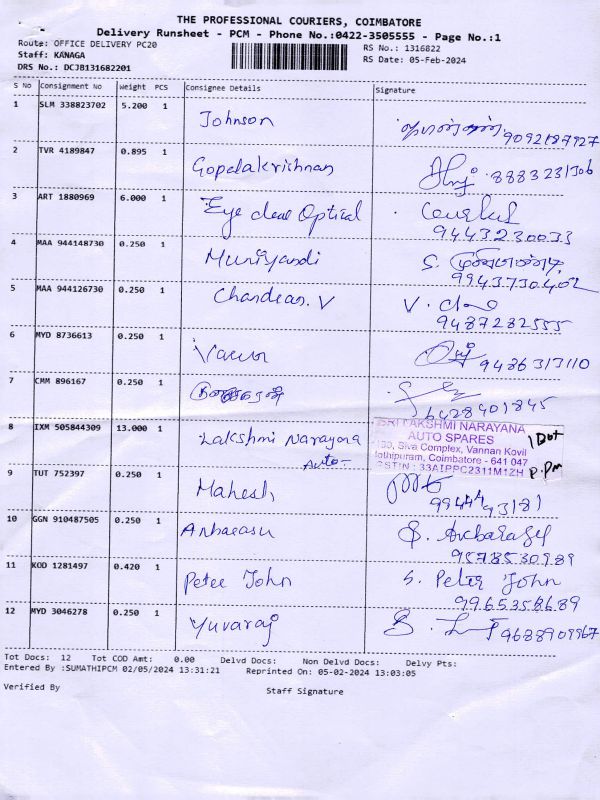 THE PROFESSIONAL COURIERS, COIMBATORE
Delivery Runsheet - PCM - Phone No.:0422-3505555 - Page No.:1
Route: OFFICE DELIVERY PC20
RS No.: 1316822
Staff: KANAGA
RS Date: 05-Feb-2024
DRS No.: DCJB131682201
S No Consignment No Weight PCS Consignee Details Signature
1 SLM 338823702 5.200 1 Johnson 9092187927
2 TVR 4189847 0.895 1 Gopalakrishnan 8883231306
3 ART 1880969 6.000 1 Eye clear Optical
9443230033
4 MAA 944148730 0.250 1 Muniyandi S. முனியாண்டி
9943730402
5 MAA 944126730 0.250 1 Chandran. V V.
9487282555
6 MYD 8736613 0.250 1 9486313110
7 CMM 896167 0.250 1
6428401845
8 IXM 505844309 13.000 1 Lakshmi Narayana
Auto
SRI LAKSHMI NARAYANA
AUTO SPARES
Siva Complex, Vannan Kovil
Jothipuram, Coimbatore - 641 047
GSTIN : 33AIPPC2311M1ZH
1 Dot
P.Pm
9 TUT 752397 0.250 1 Mahesh
9944493181
10 GGN 910487505 0.250 1 Anbarasu S. Anbarasu
9578530989
11 KOD 1281497 0.420 1 Peter John S. Peter John
9965358689
12 MYD 3046278 0.250 1 Yuvaraj 9688909967
Tot Docs: 12 Tot COD Amt: 0.00 Delvd Docs: Non Delvd Docs: Delvy Pts:
Entered By :SUMATHIPCM 02/05/2024 13:31:21 Reprinted On : 05-02-2024 13:03:05
Verified By Staff Signature